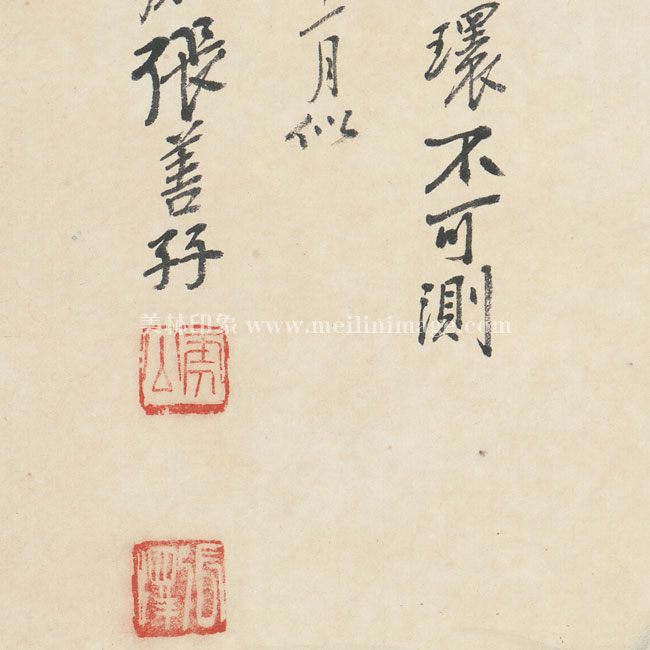 環不可測
月似
張善孖
美林印象 www.meilinimage.com
虎公
張澤